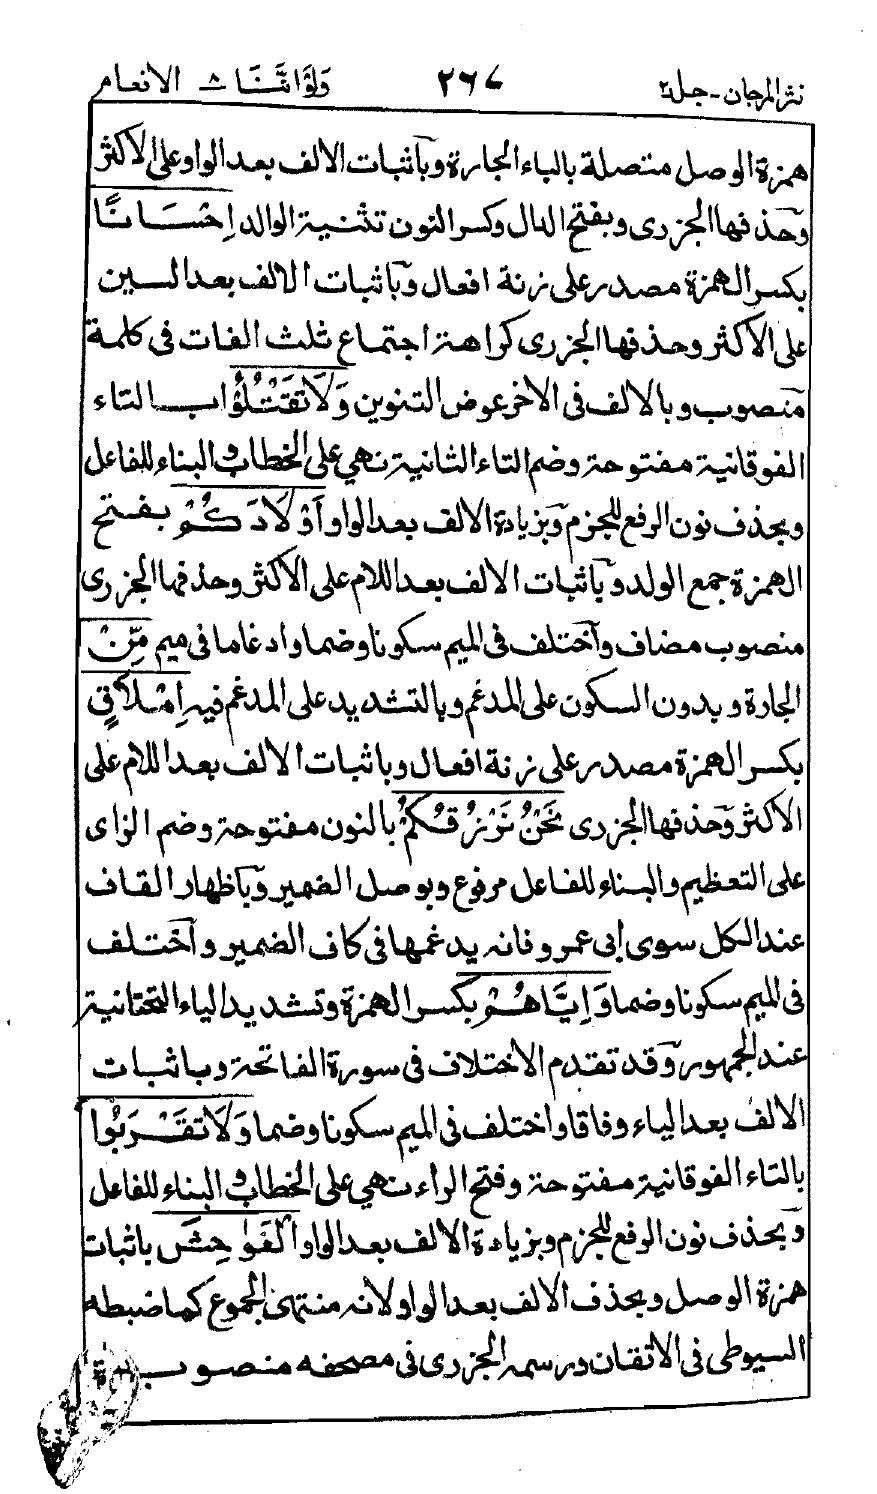 نثر المرجان - جلد ٢ ٢٦٧ وَلَوْ اَنَّنَا ٨ الانعام
همزة الوصل متصلة بالباء الجارة وبآثبات الالف بعد الواو على الاكثر
وحذفها الجزرى وبفتح الدال وكسر النون تثنية الوالد اِحْسَانًا
بكسر الهمزة مصدر على زنة افعال وبآثبات الالف بعد السين
على الاكثر وحذفها الجزرى كراهة اجتماع ثلث الفات فى كلمة
منصوب وبالالف فى الاخر عوض التنوين وَلَا تَقْتُلُوْا بالتاء
الفوقانية مفتوحة وضم التاء الثانية نهى على الخطاب والبناء للفاعل
وبحذف نون الرفع للجزم وبزيادة الالف بعد الواو اَوْلَادَكُمْ بفتح
الهمزة جمع الولد وبآثبات الالف بعد اللام على الاكثر وحذفها الجزرى
منصوب مضاف وآختلف فى الميم سكونا وضما وادغاما فى ميم مِّنْ
الجارة وبدون السكون على المدغم وبالتشديد على المدغم فيه اِمْلَاقٍ
بكسر الهمزة مصدر على زنة افعال وباثبات الالف بعد اللام على
الاكثر وحذفها الجزرى نَحْنُ نَرْزُقُكُمْ بالنون مفتوحة وضم الزاى
على التعظيم والبناء للفاعل مرفوع وبوصل الضمير وبآظهار القاف
عند الكل سوى أبى عمرو فانه يدغمها فى كاف الضمير وآختلف
فى الميم سكونا وضما وَاِيَّاهُمْ بكسر الهمزة وتشديد الياء التحتانية
عند الجمهور وقد تقدم الاختلاف فى سورة الفاتحة وباثبات
الالف بعد الياء وفاقا واختلف فى الميم سكونا وضما وَلَا تَقْرَبُوا
بالتاء الفوقانية مفتوحة وفتح الراء نهى على الخطاب والبناء للفاعل
وبحذف نون الرفع للجزم وبزيادة الالف بعد الواو الْفَوٰحِشَ باثبات
همزة الوصل وبحذف الالف بعد الواو لانه منتهى الجموع كما ضبطه
السيوطى فى الاتقان ورسمه الجزرى فى مصحفه منصوب